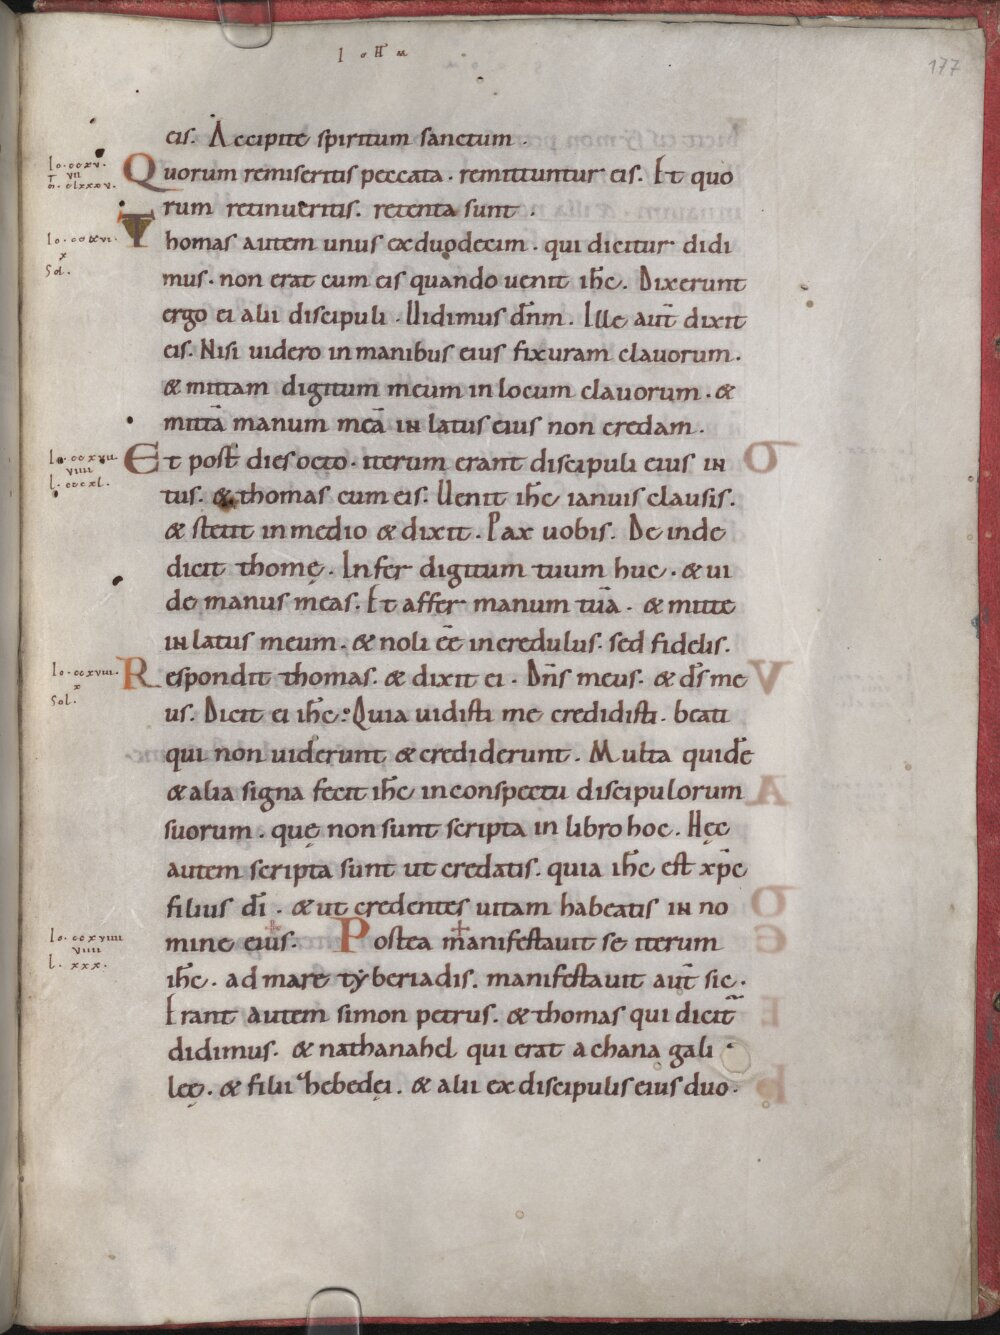 IOHAN
177
eis. Accipite spiritum sanctum.
Io. ccxv.
VII
m. clxxxv.
Quorum remiseritis peccata. remittuntur eis. Et quo
rum retinueritis. retenta sunt.
Io. ccxvi.
x
Sol.
Thomas autem unus ex duodecim. qui dicitur didi
mus. non erat cum eis quando uenit ih̄c. Dixerunt
ergo ei alii discipuli. Uidimus dn̄m. Ille aut̄ dixit
eis. Nisi uidero in manibus eius fixuram clauorum.
& mittam digitum meum in locum clauorum. &
mittā manum meā in latus eius non credam.
Io. ccxvii.
VIIII
l. cccxl.
Et post dies octo. iterum erant discipuli eius in
tus. & thomas cum eis. Uenit ih̄c ianuis clausis.
& stetit in medio & dixit. Pax uobis. De inde
dicit thomę. Infer digitum tuum huc. & ui
de manus meas. Et affer manum tuā. & mitte
in latus meum. & noli eē incredulus. sed fidelis.
Io. ccxviii.
x
Sol.
Respondit thomas. & dixit ei. Dn̄s meus. & d̄s me
us. Dicit ei ih̄c. Quia uidisti me credidisti. beati
qui non uiderunt & crediderunt. Multa quidē
& alia signa fecit ih̄c in conspectu discipulorum
suorum. quę non sunt scripta in libro hoc. Hęc
autem scripta sunt ut credatis. quia ih̄c est xp̄c
filius dī. & ut credentes uitam habeatis in no
Io. ccxviiii
VIIII
l. xxx.
mine eius. Postea manifestauit se iterum
ih̄c. ad mare tyberiadis. manifestauit aut̄ sic.
Erant autem simon petrus. & thomas qui dicit̄
didimus. & nathanahel qui erat a chana gali
leę. & filii hebedęi. & alii ex discipulis eius duo.